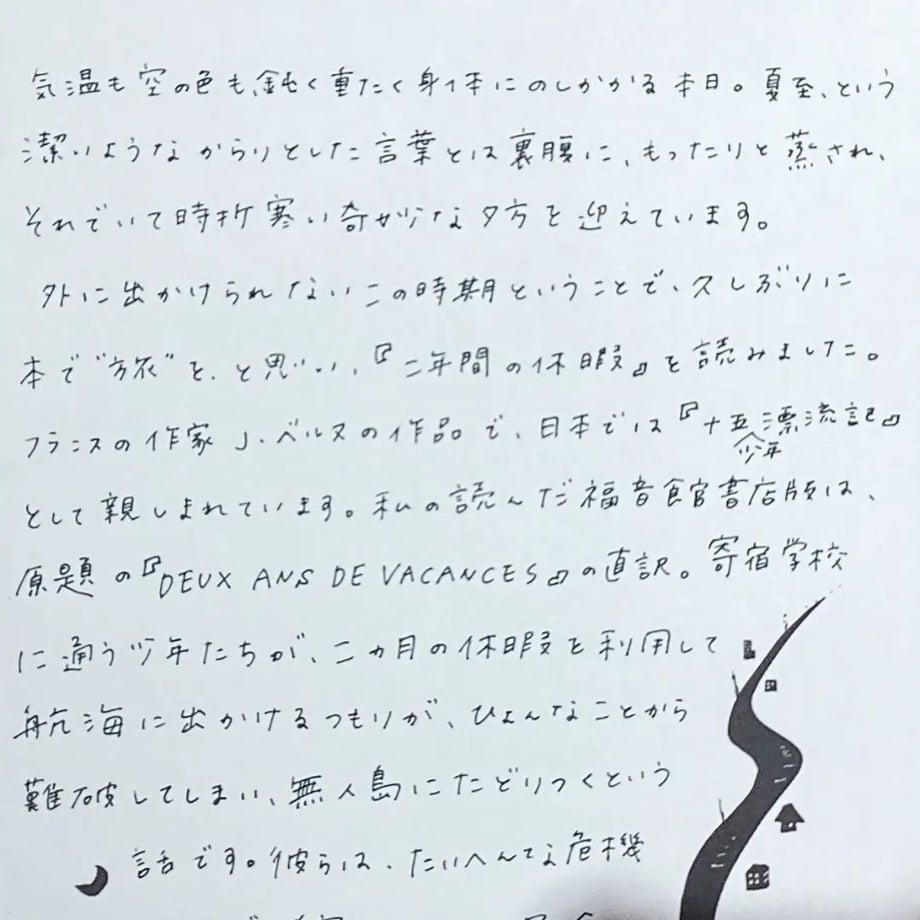 気温も空の色も、鈍く重たく身体にのしかかる本日。夏至、という
潔いようなからりとした言葉とは裏腹に、もったりと蒸され、
それでいて時折寒い奇妙な夕方を迎えています。
外に出かけられないこの時期ということで、久しぶりに
本で"旅"を、と思い、『二年間の休暇』を読みました。
フランスの作家J.ベルヌの作品。で、日本では『十五少年漂流記』
として親しまれています。私の読んだ福音館書店版は、
原題の『DEUX ANS DE VACANCES』の直訳。寄宿学校
に通う少年たちが、二ヵ月の休暇を利用して
航海に出かけるつもりが、ひょんなことから
難破してしまい、無人島にたどりつくという
話です。彼らは、たいへんな危機